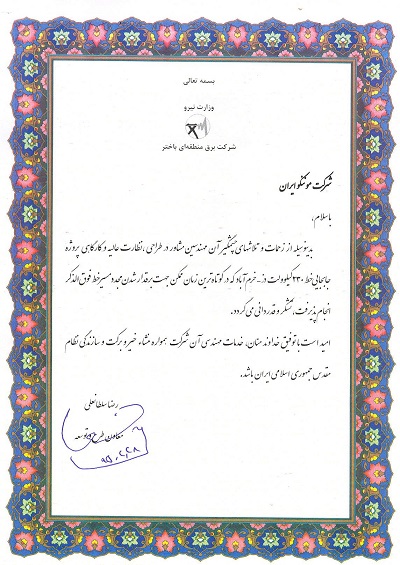 بسمه تعالی
وزارت نیرو
شرکت برق منطقه‌ای باختر
شرکت موننکو ایران
با سلام،
بدینوسیله از زحمات و تلاشهای چشمگیر آن مهندسین مشاور در طراحی، نظارت عالیه و کارگاهی پروژه
جابجایی خط ۲۳۰ کیلوولت دز - خرم آباد که در کوتاه ترین زمان ممکن جهت برقدار شدن مجدد مسیر خط فوق الذکر
انجام پذیرفت، تشکر و قدردانی می گردد.
امید است با توفیق خداوند منان، خدمات مهندسی آن شرکت همواره منشاء خیر و برکت و سازندگی نظام
مقدس جمهوری اسلامی ایران باشد.
رضا سلطانعلی
معاون طرح و توسعه